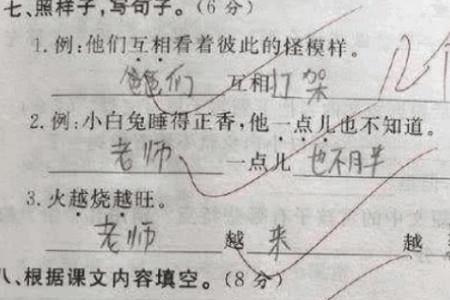 七、照样子，写句子。（6分）
1. 例：他们互相看着彼此的怪模样。
爸爸们 互相打架
2. 例：小白兔睡得正香，他一点儿也不知道。
老师 一点儿 也不月半
3. 火越烧越旺。
老师 越 来 越
八、根据课文内容填空。（8分）